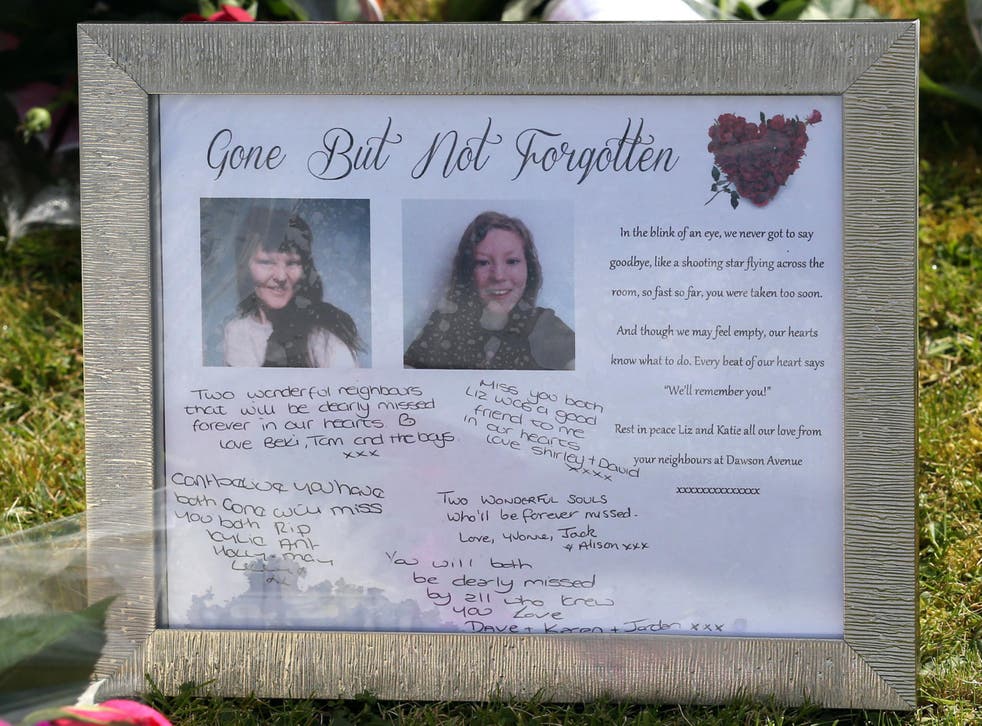 Gone But Not Forgotten
In the blink of an eye, we never got to say
goodbye, like a shooting star flying across the
room, so fast so far, you were taken too soon.
And though we may feel empty, our hearts
know what to do. Every beat of our heart says
"We'll remember you!"
Rest in peace Liz and Katie all our love from
your neighbours at Dawson Avenue
xxxxxxxxxxxxxx
Two wonderful neighbours
that will be dearly missed
forever in our hearts.
Love Beki, Tom and the boys
xxx
Miss you both
Liz was a good
friend to me
in our hearts
love Shirley + David
xxxx
you have
both Gone will miss
you both Rip
Kylie Ant
Holly-may
Two wonderful souls
who'll be forever missed.
Love, Yvonne, Jack
& Alison xxx
You will both
be dearly missed
by all who knew
you Love
Dave + Karen + Jordan xxx